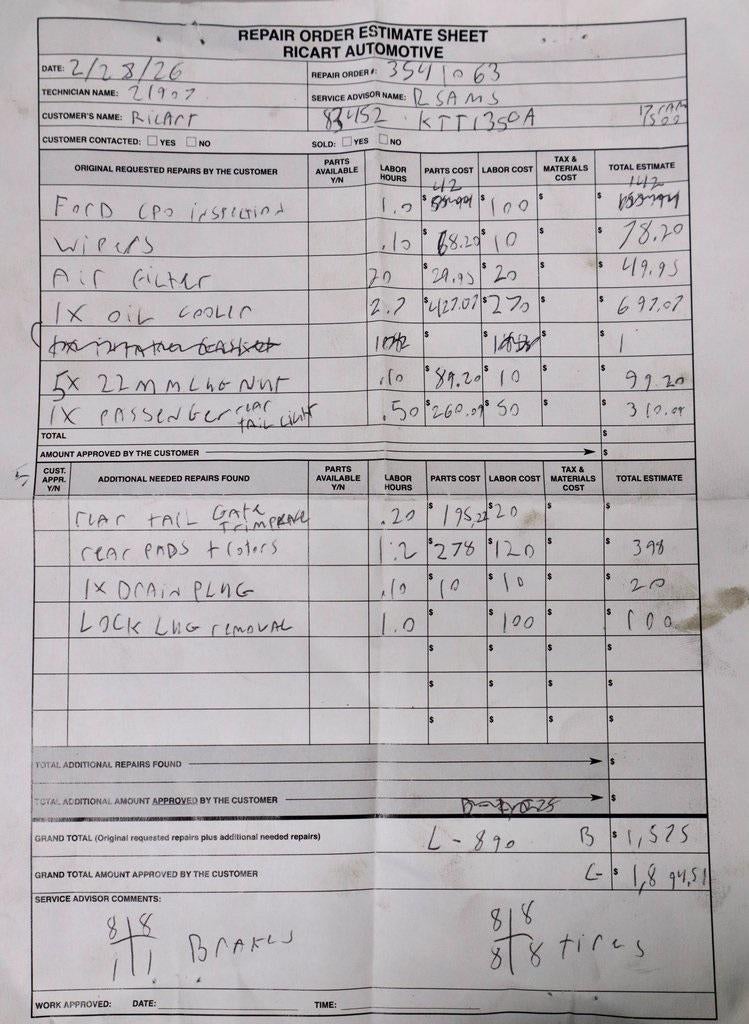 REPAIR ORDER ESTIMATE SHEET
RICART AUTOMOTIVE
DATE: 2/28/26 REPAIR ORDER #: 3541063
TECHNICIAN NAME: 21907 SERVICE ADVISOR NAME: RSAMS
CUSTOMER'S NAME: RICART 83452 KTT1350A
CUSTOMER CONTACTED: YES NO SOLD: YES NO
ORIGINAL REQUESTED REPAIRS BY THE CUSTOMER PARTS AVAILABLE Y/N LABOR HOURS PARTS COST LABOR COST TAX & MATERIALS COST TOTAL ESTIMATE
FORD CPO inspection 1.0 $ 42 $ 100 $ $ 142
WIPERS .10 $ 68.20 $ 10 $ $ 78.20
Air Filter 20 $ 29.95 $ 20 $ $ 49.95
1X OIL COOLER 2.7 $ 427.07 $ 270 $ $ 697.07
$ $ $ $
5X 22MM LUG NUT .10 $ 89.20 $ 10 $ $ 99.20
1X PASSENGER rear tail light .50 $ 260.09 $ 50 $ $ 310.09
TOTAL $
AMOUNT APPROVED BY THE CUSTOMER $
CUST. APPR. Y/N ADDITIONAL NEEDED REPAIRS FOUND PARTS AVAILABLE Y/N LABOR HOURS PARTS COST LABOR COST TAX & MATERIALS COST TOTAL ESTIMATE
rear TAIL Gate .20 $ 195.22 $ 20 $ $
rear PADS + rotors 1.2 $ 278 $ 120 $ $ 398
1X DRAIN PLUG .10 $ 10 $ 10 $ $ 20
LOCK LUG removal 1.0 $ $ 100 $ $ 100
$ $ $ $
$ $ $ $
$ $ $ $
TOTAL ADDITIONAL REPAIRS FOUND $
TOTAL ADDITIONAL AMOUNT APPROVED BY THE CUSTOMER $
GRAND TOTAL (Original requested repairs plus additional needed repairs) L - 890 B $ 1,525
GRAND TOTAL AMOUNT APPROVED BY THE CUSTOMER $ 1,894.51
SERVICE ADVISOR COMMENTS:
8 8 8 8
1 1 BRAKES 8 8 tires
WORK APPROVED: DATE: TIME: